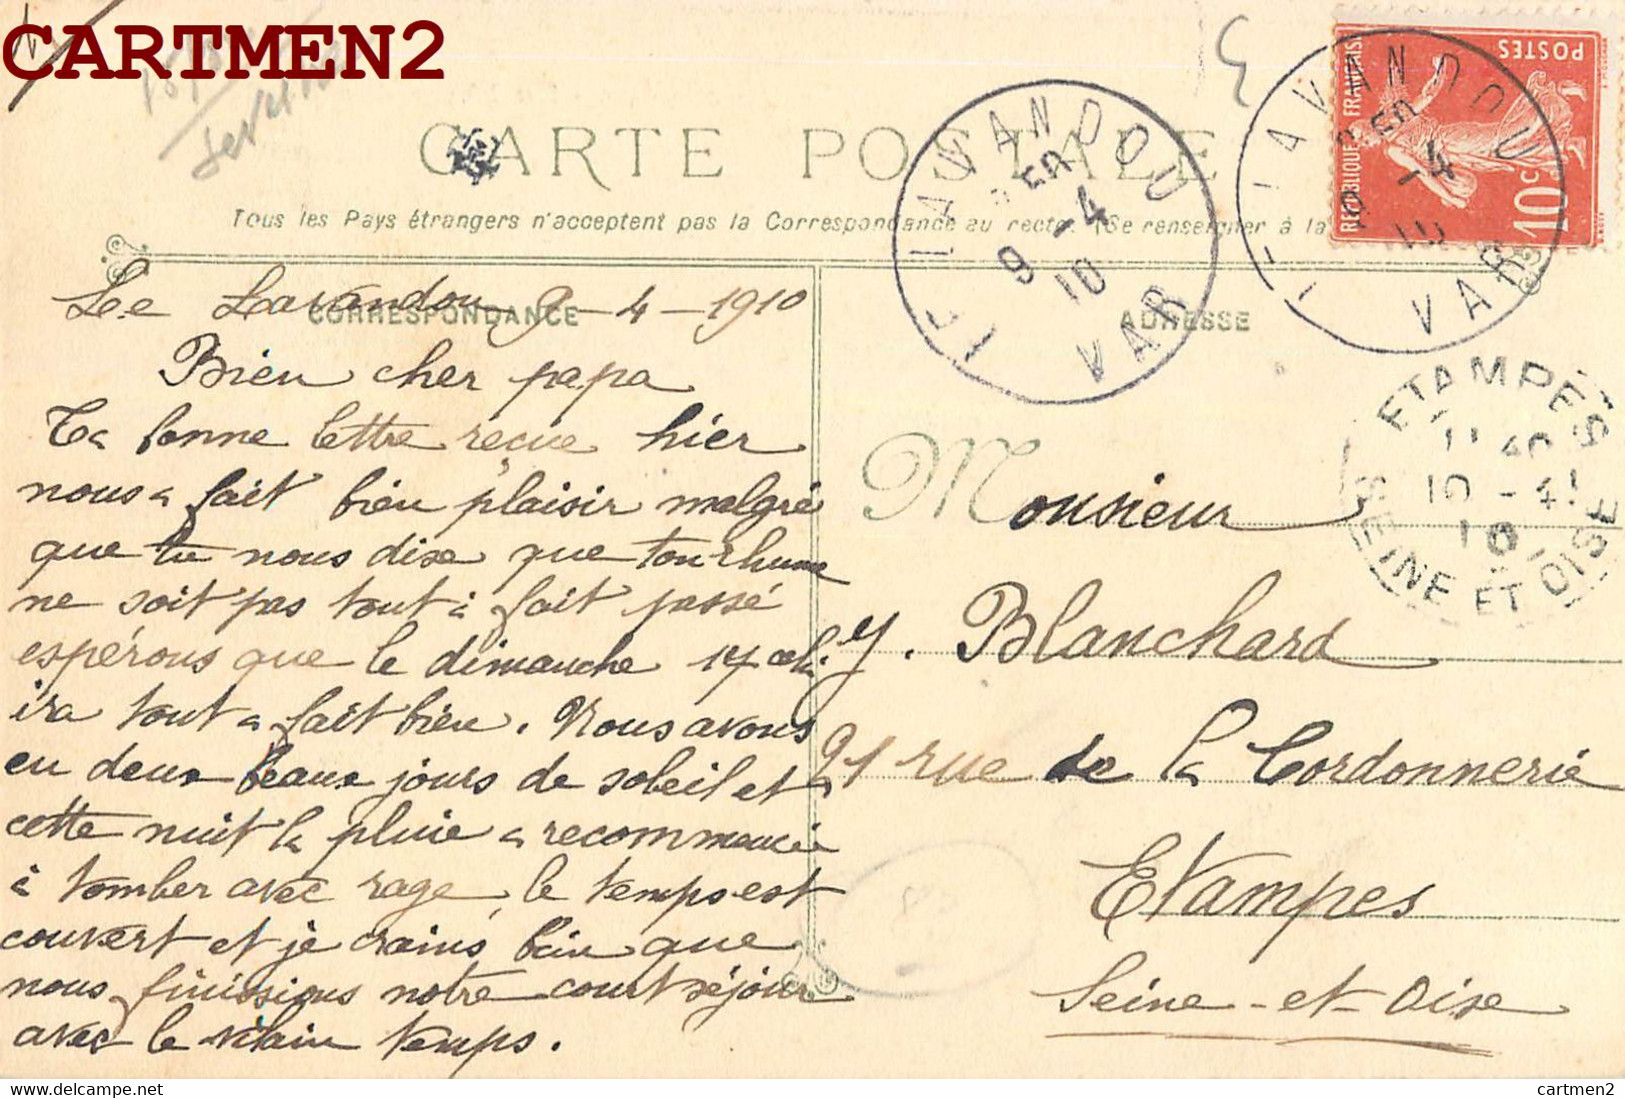 CARTMEN2
CARTE POSTALE
Tous les Pays étrangers n'acceptent pas la Correspondance au recto. (Se renseigner à la
CORRESPONDANCE
ADRESSE
Le Lavandou 9-4-1910
Bien cher papa
Ta bonne lettre reçue hier
nous a fait bien plaisir malgré
que tu nous dise que ton rhume
ne soit pas tout à fait passé
espérons que le dimanche 17 cela
ira tout a fait bien. Nous avons
eu deux beaux jours de soleil et
cette nuit la pluie a recommencé
à tomber avec rage, le temps est
couvert et je crains bien que
nous finissions notre court séjour
avec le vilain temps.
Monsieur
J. Blanchard
21 rue de la Cordonnerie
Etampes
Seine-et-Oise
LE LAVANDOU
9 -4
10
VAR
LE LAVANDOU
9 -4
10
VAR
REPUBLIQUE FRANÇAISE
POSTES
10 C
ETAMPES
10 -4
10
SEINE ET OISE
cartmen2
cartmen2